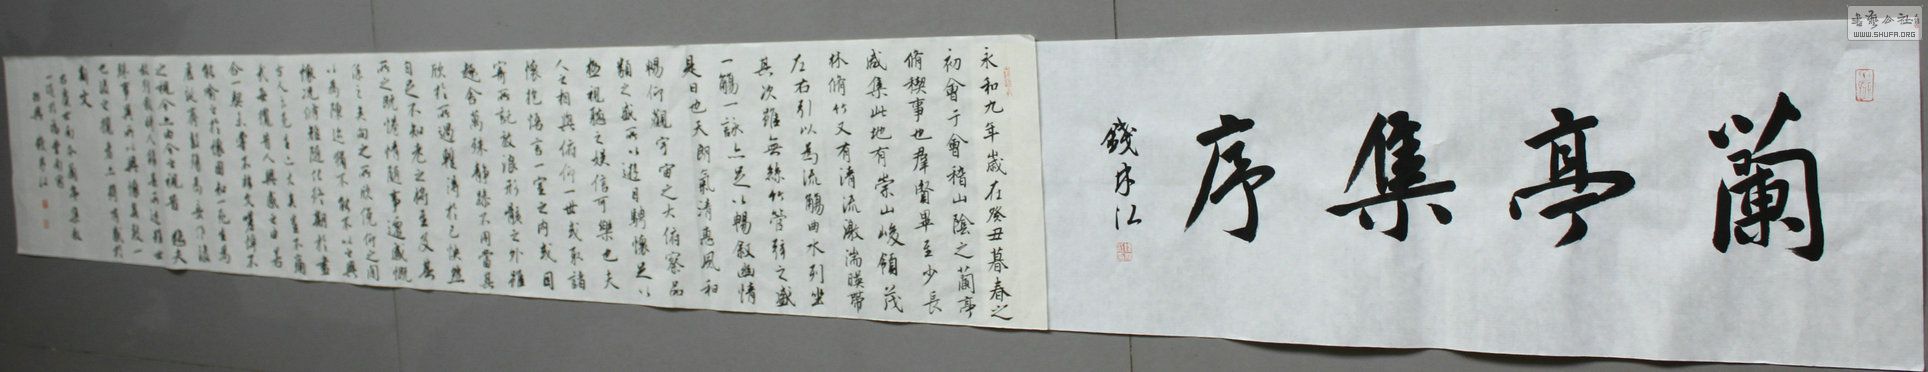 書藝公社
WWW.SHUFA.ORG
蘭亭集序
錢 江
永和九年歲在癸丑暮春之
初會于會稽山陰之蘭亭
脩稧事也羣賢畢至少長
咸集此地有崇山峻領茂
林脩竹又有清流激湍暎帶
左右引以為流觴曲水列坐
其次雖無絲竹管弦之盛
一觴一詠亦足以暢敘幽情
是日也天朗氣清惠風和
暢仰觀宇宙之大俯察品
類之盛所以遊目騁懷足以
極視聽之娛信可樂也夫
人之相與俯仰一世或取諸
懷抱悟言一室之內或因
寄所託放浪形骸之外雖
趣舍萬殊靜躁不同當其
欣於所遇暫得於己快然
自足不知老之將至及其
所之既惓情隨事遷感慨
係之矣向之所欣俛仰之間
以為陳迹猶不能不以之興
懷況脩短隨化終期於盡
古人云死生亦大矣豈不痛
哉每攬昔人興感之由若
合一契未嘗不臨文嗟悼不
能喻之於懷固知一死生為
虛誕齊彭殤為妄作後
之視今亦由今之視昔 悲夫
故列敘時人錄其所述雖世
殊事異所以興懷其致一
也後之攬者亦將有感於
斯文